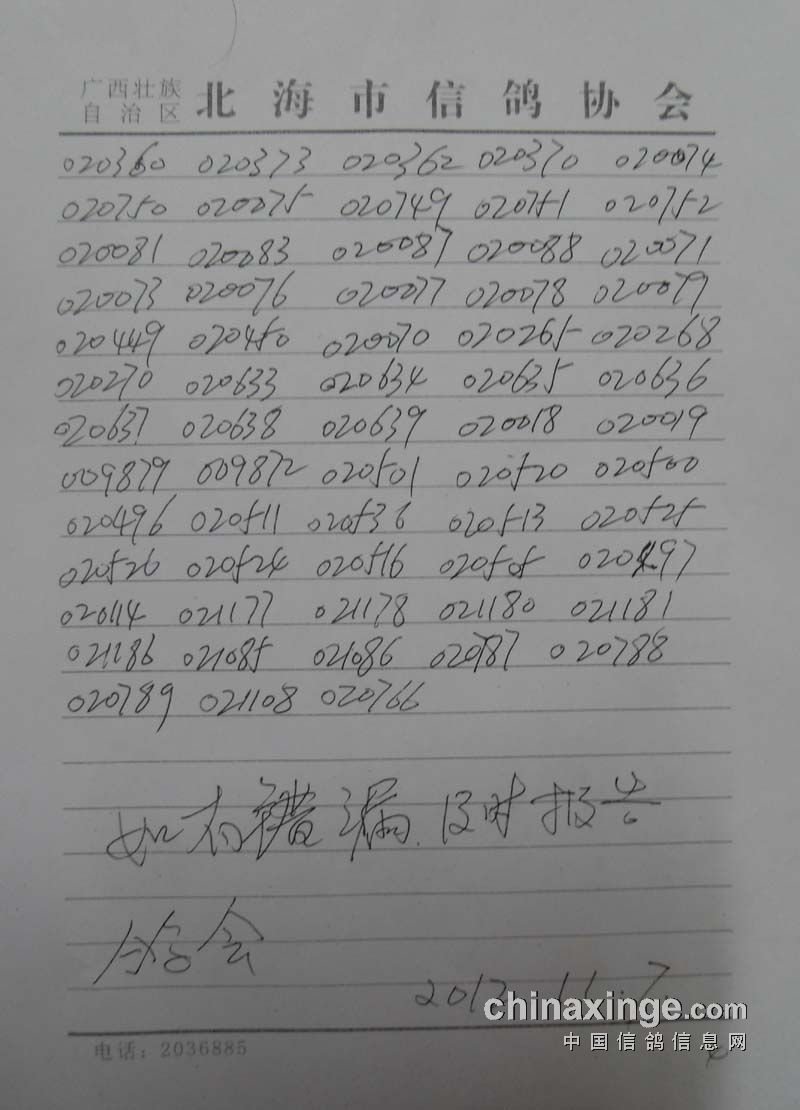 广西壮族
自治区
北海市信鸽协会
020360 020373 020362 020370 020074
020750 020075 020749 020751 020752
020081 020083 020087 020088 020071
020073 020076 020077 020078 020079
020449 020450 020070 020265 020268
020270 020633 020634 020635 020636
020637 020638 020639 020018 020019
009879 009872 020501 020520 020500
020496 020511 020536 020513 020525
020526 020524 020516 020505 020497
020114 021177 021178 021180 021181
021186 021085 021086 020787 020788
020789 021108 020766
如有错漏.及时报告
会
2012.11.7.
chinaxinge.com
中国信鸽信息网
电话：2036885